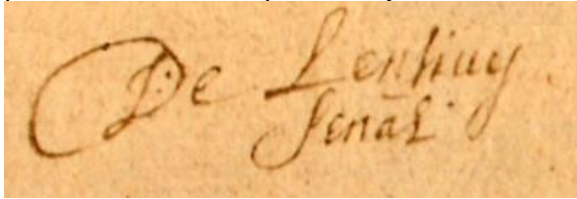 De Lentiuy
Senāl